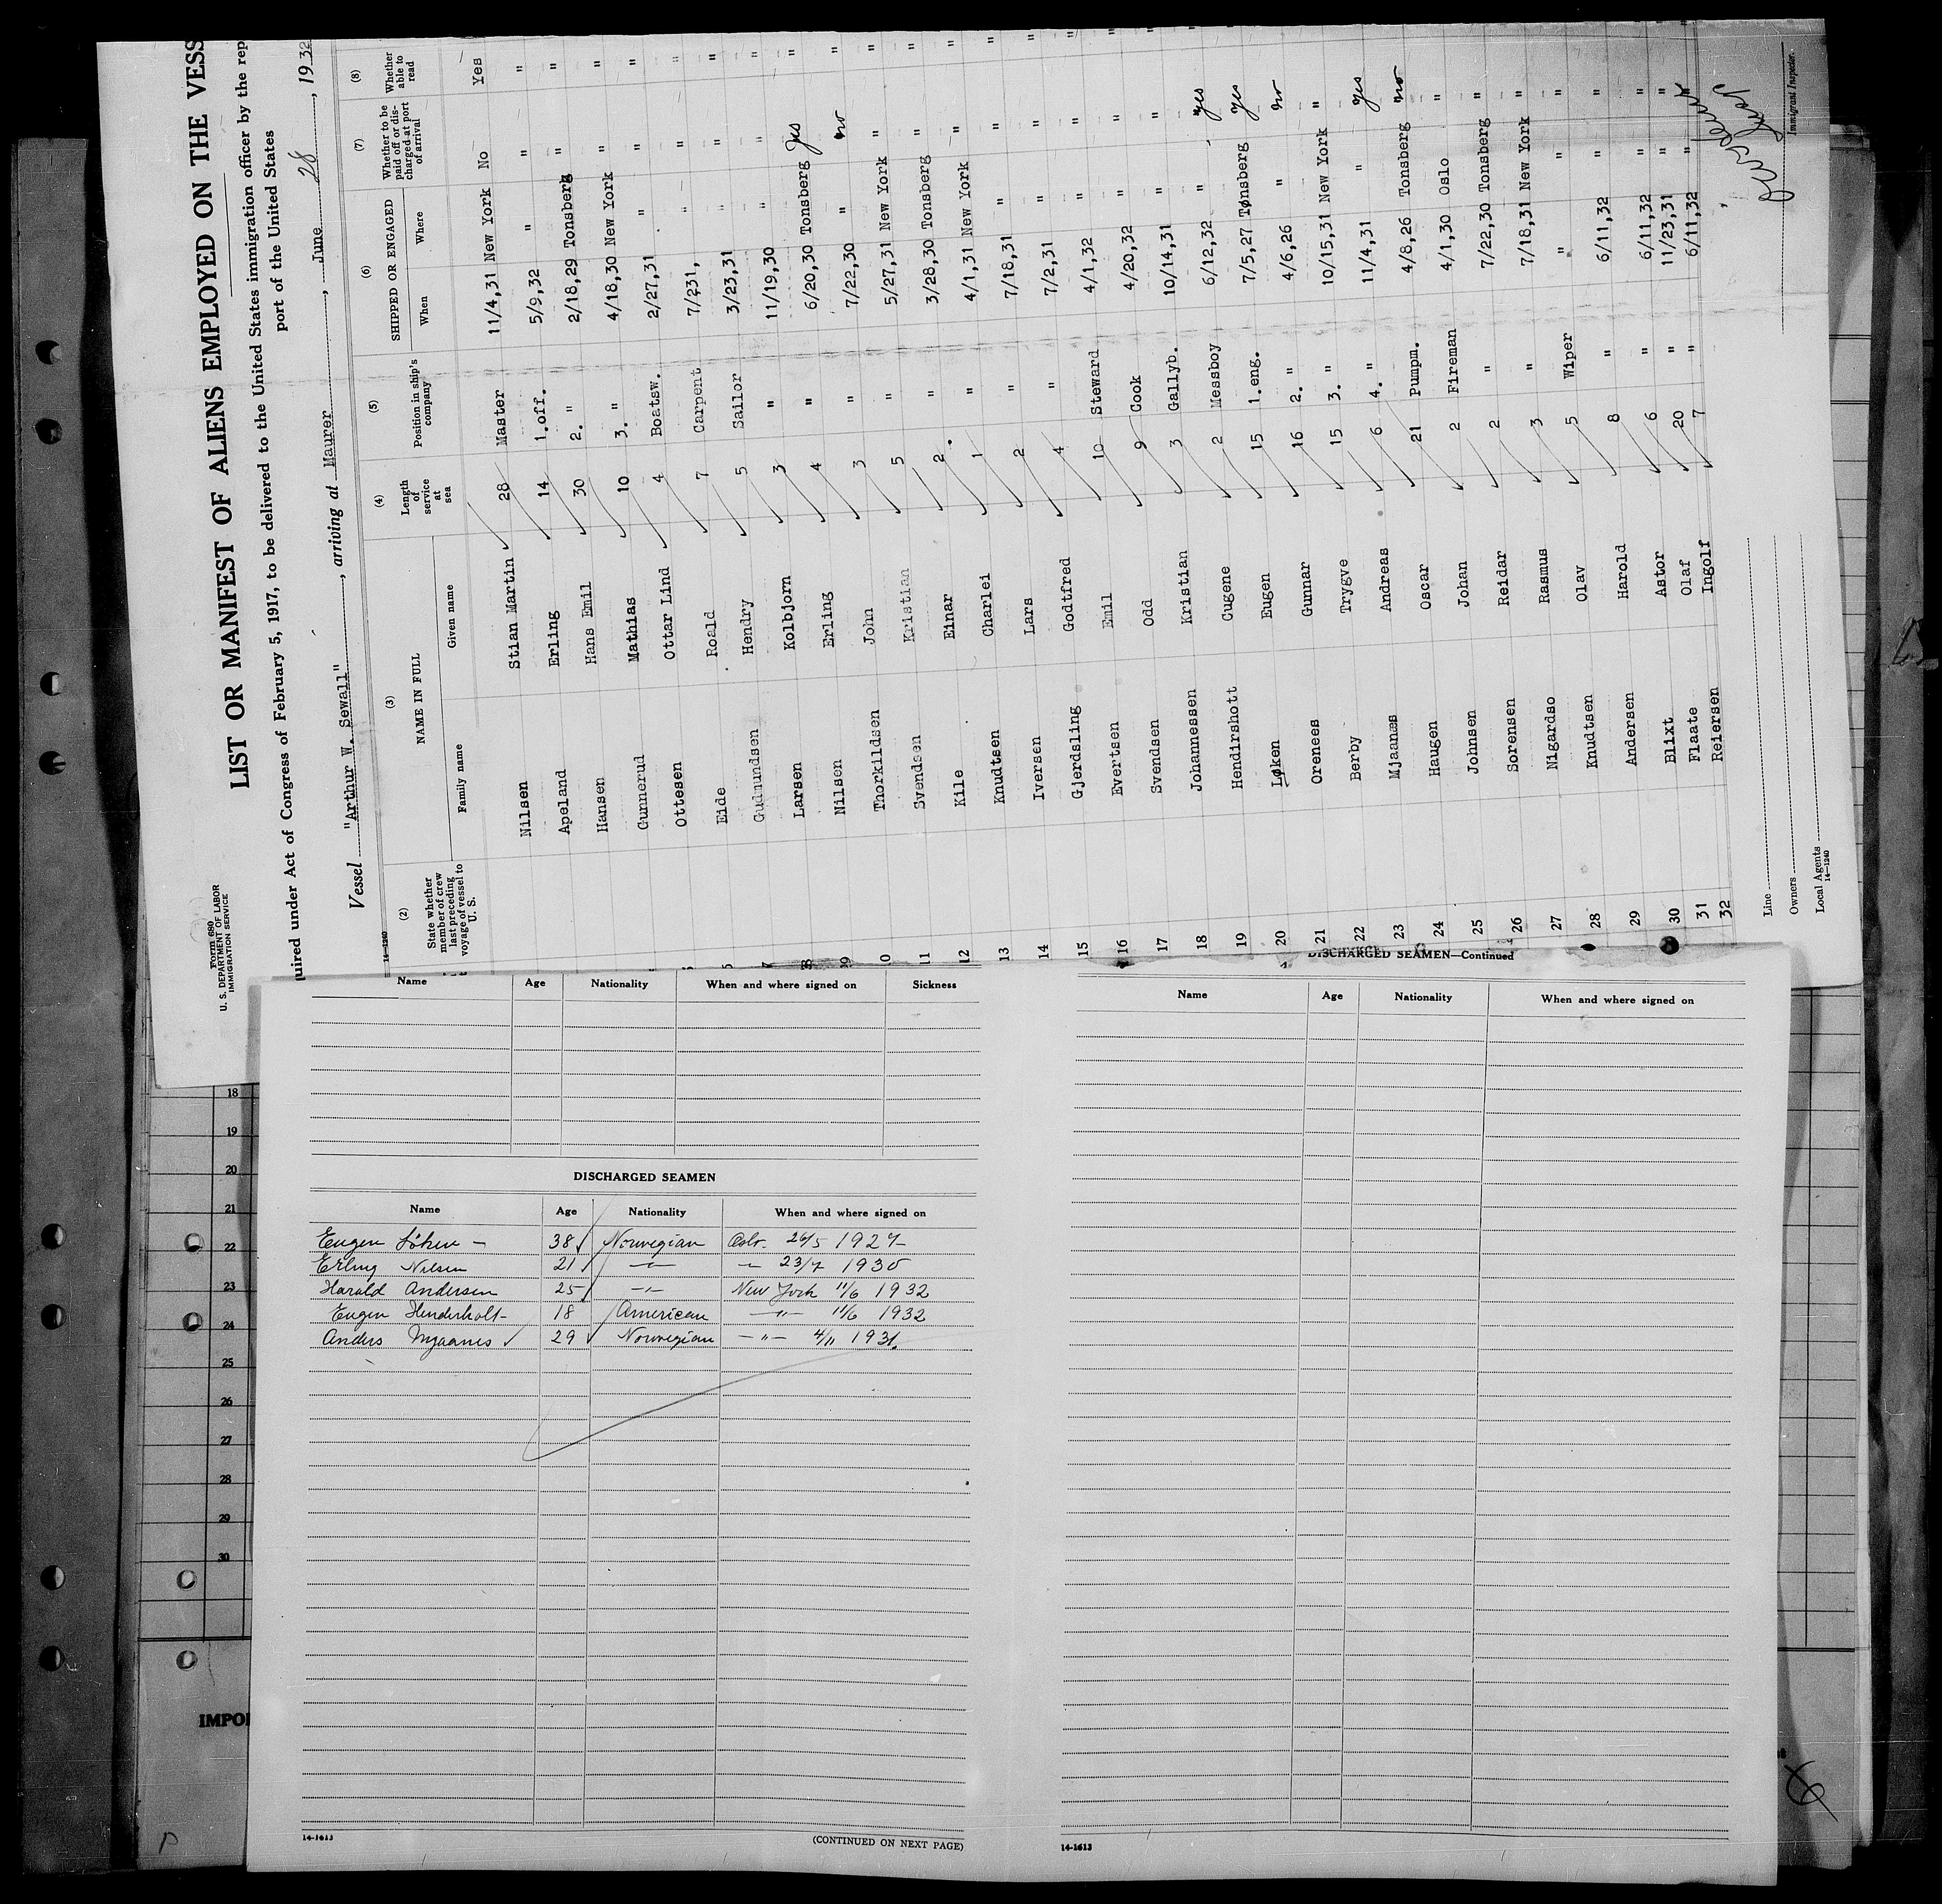 Form 680
U. S. DEPARTMENT OF LABOR
IMMIGRATION SERVICE
LIST OR MANIFEST OF ALIENS EMPLOYED ON THE VESS
uired under Act of Congress of February 5, 1917, to be delivered to the United States immigration officer by the rep
port of the United States
Vessel "Arthur W. Sewall", arriving at Maurer, June 28, 1932
14-1240
(2) (3) (4) (5) (6) (7) (8)
State whether member of crew last preceding voyage of vessel to U. S. NAME IN FULL Length of service at sea Position in ship's company SHIPPED OR ENGAGED Whether to be paid off or discharged at port of arrival Whether able to read
Family name Given name When Where
Nilsen Stian Martin 28 Master 11/4,31 New York No Yes
Apeland Erling 14 1.off. 5/9,32 " " "
Hansen Hans Emil 30 2. " 2/18,29 Tonsberg " "
Gunnerud Mathias 10 3. " 4/18,30 New York " "
Ottesen Ottar Lind 4 Boatsw. 2/27,31 " " "
Eide Roald 7 Carpent. 7/231, " " "
Gudmundsen Hendry 5 Sailor 3/23,31 " " "
Larsen Kolbjorn 3 " 11/19,30 " " "
Nilsen Erling 4 " 6/20,30 Tonsberg yes "
Thorkildsen John 3 " 7/22,30 " no "
10 Svendsen Kristian 5 " 5/27,31 New York " "
11 Kile Einar 2. " 3/28,30 Tonsberg " "
12 Knudtsen Charlei 1 " 4/1,31 New York " "
13 Iversen Lars 2 " 7/18,31 " " "
14 Gjerdsling Godtfred 4 " 7/2,31 " " "
15 Evertsen Emil 10 Steward 4/1,32 " " "
16 Svendsen Odd 9 Cook 4/20,32 " " "
17 Johannessen Kristian 3 Gallyb. 10/14,31 " " "
18 Hendirshott Cugene 2 Messboy 6/12,32 " yes "
19 Løken Eugen 15 1.eng. 7/5,27 Tønsberg yes "
20 Orenees Gunnar 16 2. " 4/6,26 " no "
21 Berby Trygve 15 3. " 10/15,31 New York " "
22 Mjaanæs Andreas 6 4. " 11/4,31 " yes "
23 Haugen Oscar 21 Pumpm. 4/8,26 Tonsberg no "
24 Johnsen Johan 2 Fireman 4/1,30 Oslo " "
25 Sorensen Reidar 2 " 7/22,30 Tonsberg " "
26 Nigardso Rasmus 3 " 7/18,31 New York " "
27 Knudtsen Olav 5 Wiper " " " "
28 Andersen Harold 8 " 6/11,32 " "
29 Blixt Astor 6 " 6/11,32 " "
30 Flaate Olaf 20 " 11/23,31 " "
31 Reiersen Ingolf 7 " 6/11,32 " "
32
Line
Owners
Local Agents
14-1240
Immigrant Inspector.
Name Age Nationality When and where signed on Sickness
DISCHARGED SEAMEN
Name Age Nationality When and where signed on
Eugen Löken — 38 Norwegian Oslo. 26/5 1927
Erling Nilsen 21 —"— —"— 23/7 1930
Harald Andersen 25 —"— New York 11/6 1932
Eugen Henderholt- 18 American —"— 11/6 1932
Anders Mjaanes 29 Norwegian —"— 4/11 1931.
14-1613
(CONTINUED ON NEXT PAGE)
DISCHARGED SEAMEN—Continued
Name Age Nationality When and where signed on
14-1613
18
19
20
21
22
23
24
25
26
27
28
29
30
IMPO